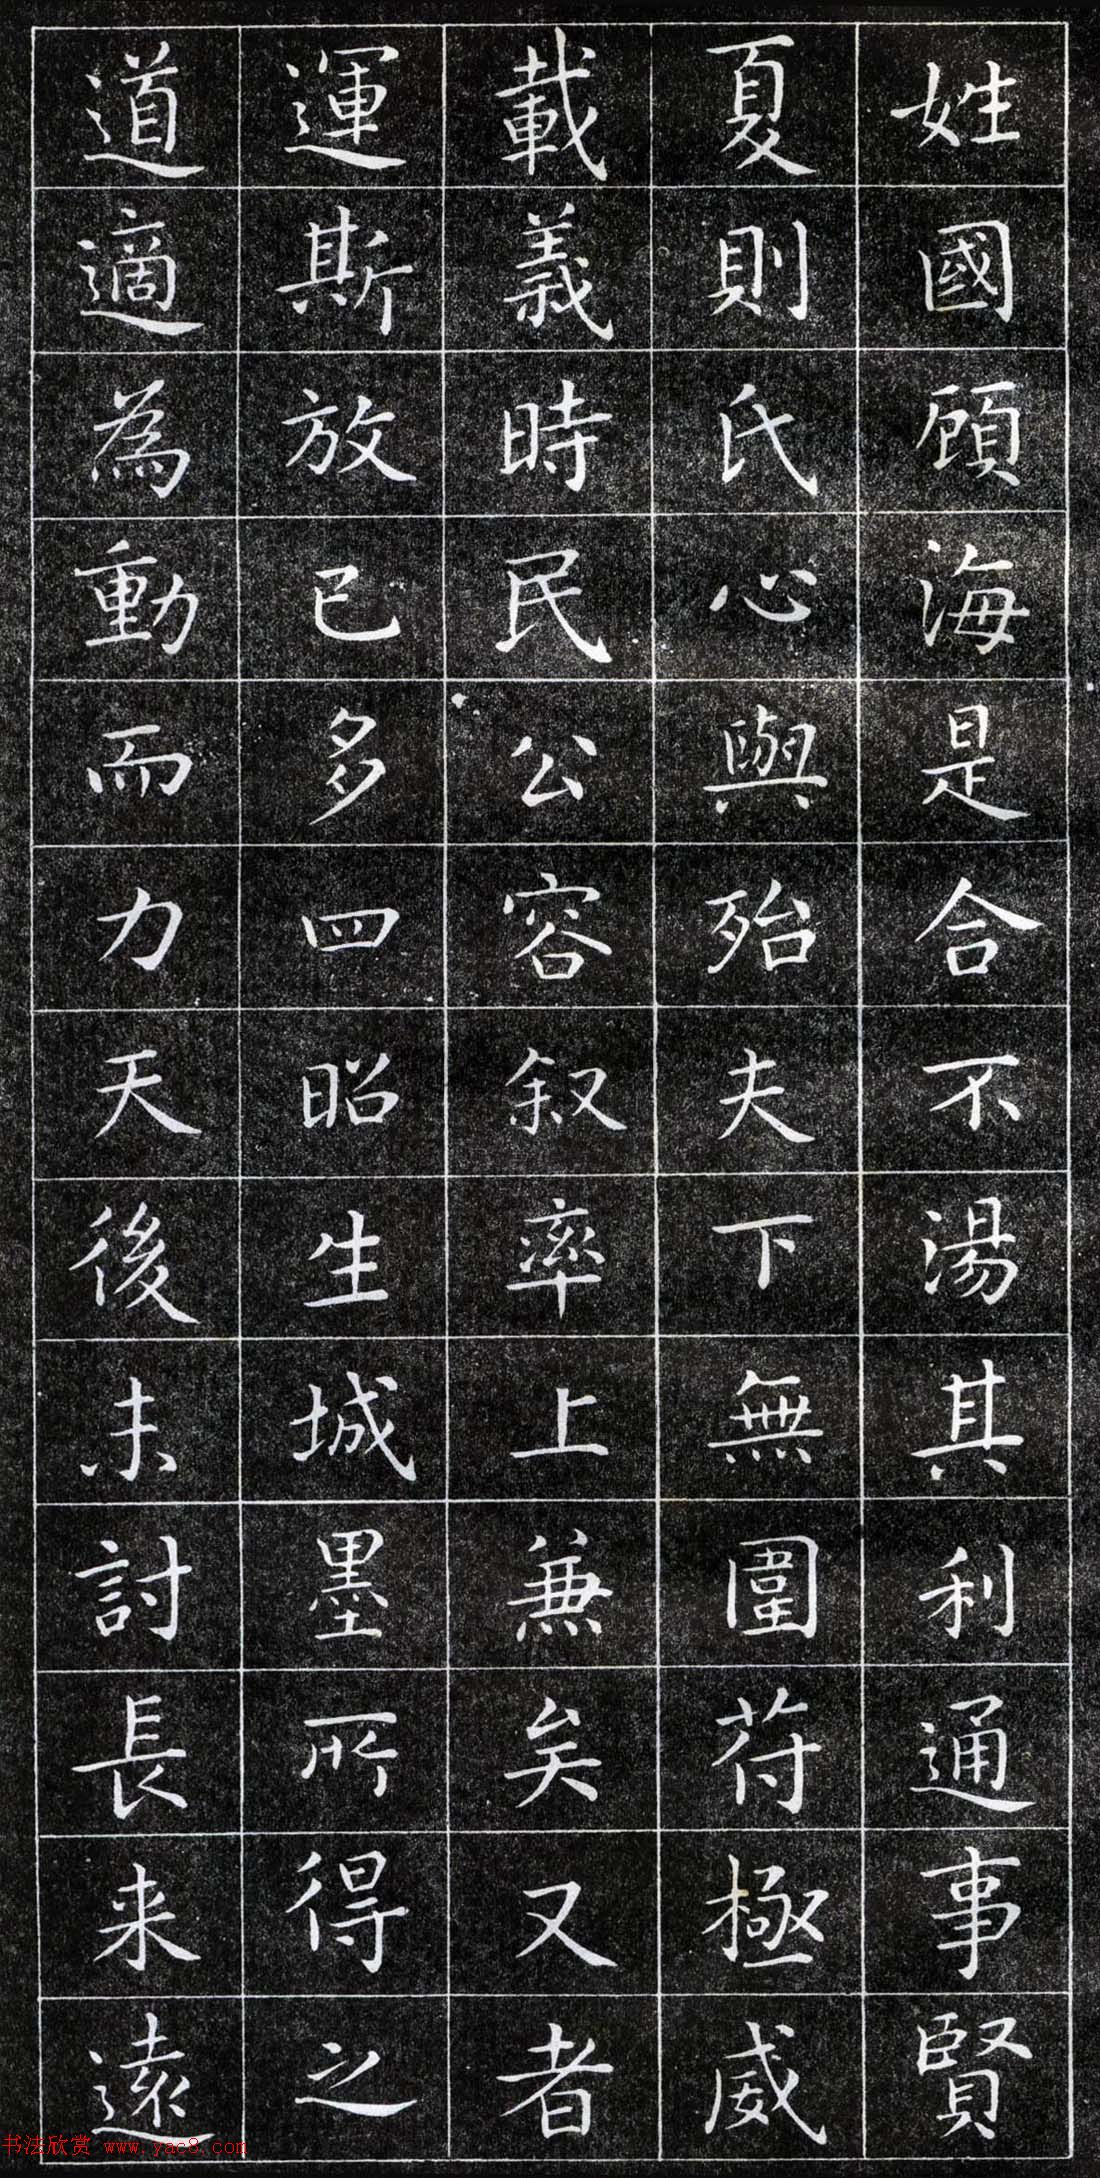 姓國顧海是合不湯其利通事賢
夏則氏心與殆夫下無圍苻極威
載義時民公容叙率上兼矣又者
運斯放已多四昭生城墨所得之
道適為動而力天後未討長来遠
书法欣赏 www.yac8.com